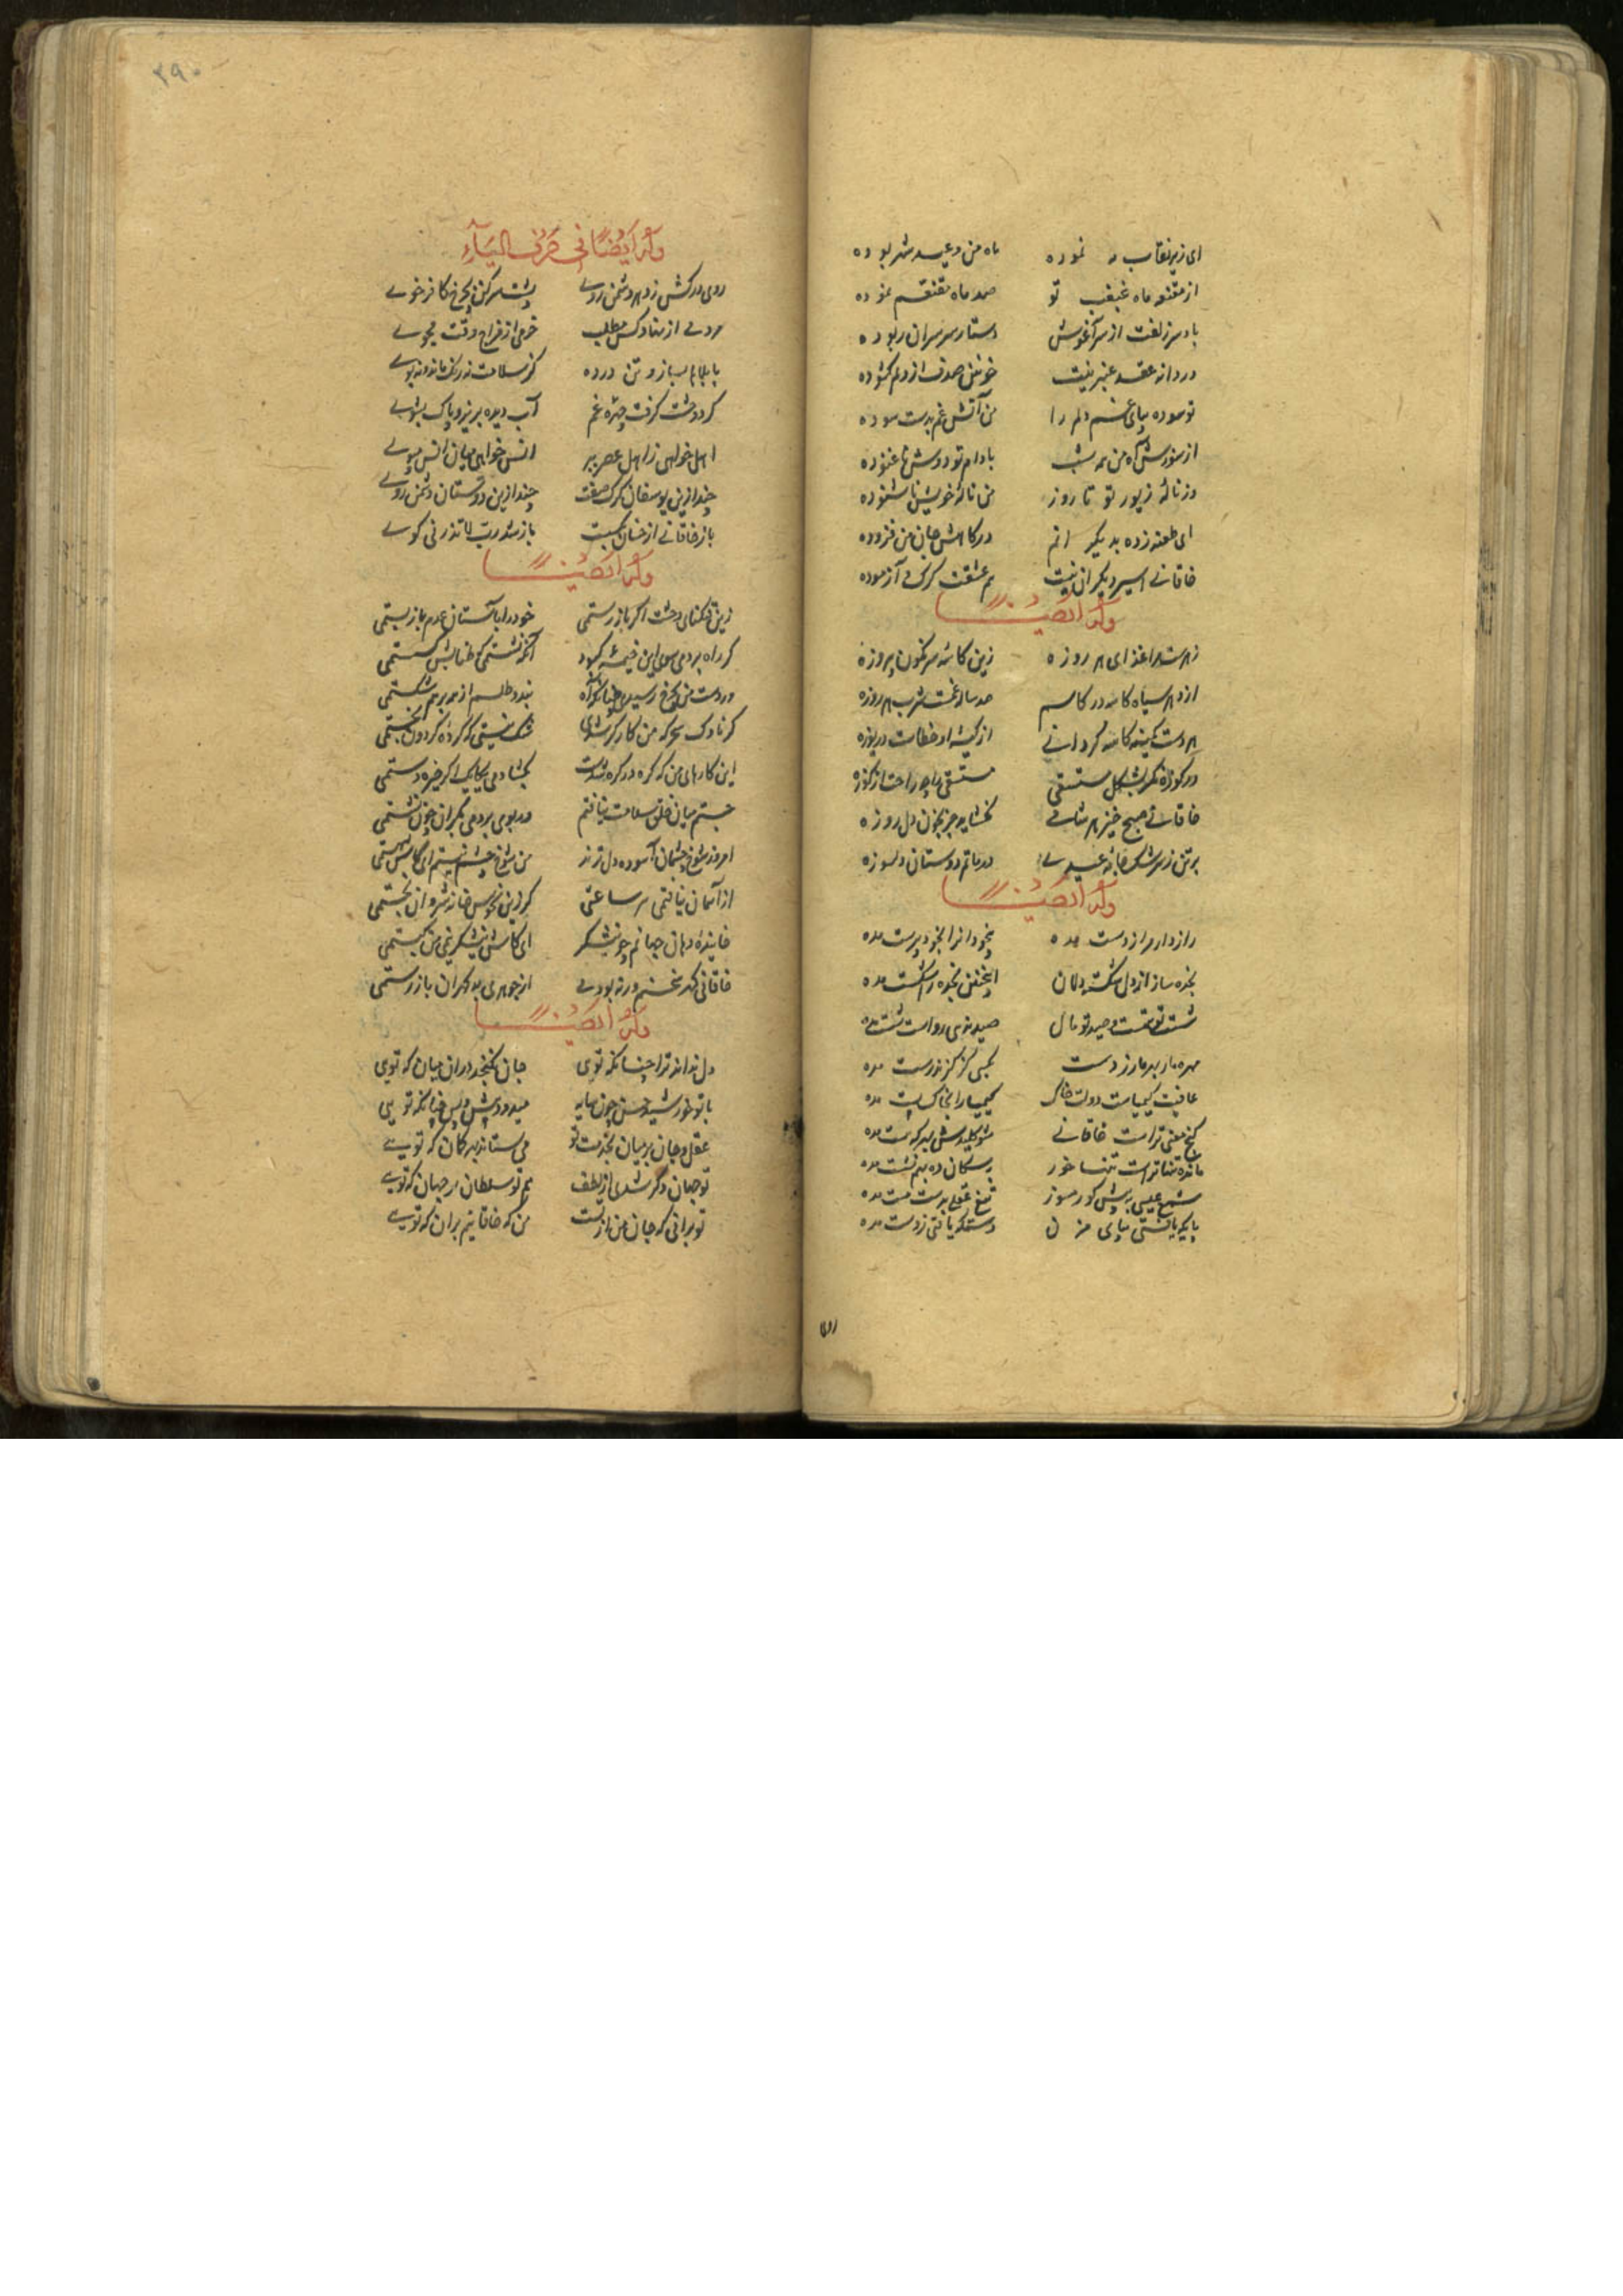 ای زیر نقاب مه نموده ماه من و عید شهر بوده
از مقنعه ماه غبغب تو صد ماه مقنعم نموده
باد سر زلفت از سر آغوش دستار سر سران ربوده
دردانه عقد عنبرینت خونین صدف از دلم گشوده
تو سوده بپای غم دلم را من آتش غم بدست سوده
از سوزش آه من همه شب بادام تو دوش ناغنوده
وز ناله زیور تو تا روز من ناله خویش ناشنوده
ای طعنه زده بدیگرانم در کاهش جان من فزوده
خاقانی اسیر دیگران نیست هم عشقت کرک آزموده
وله ایضا
زهرست مرا غذای هر روزه زین کاسه سرنگون پیروزه
از دهر سیاه کاسه در کاسم صد ساله غمست شرب هر روزه
هر دست کمینه کاسه گردانی از کیسه او خطاست دریوزه
در کوزه نگر بشکل مستسقی مستسقی را چه راحت از کوزه
خاقانی صبح خیز هر شامی نگشاید جز بخون دل روزه
بر تن ز سرشک جامه عیدی در ماتم دوستان دلسوزه
وله ایضا
راز دار مرا ز دست مده بیخودانرا بخود پرست مده
خنده ساز از دل شکسته دلان خنده را شکست مده
شست تو همت و صید تو مال صید نوی رواست شست مده
مهره مار بهر مار ز دست بکسی کز گزند رست مده
عاقبت کیمیاست دولت خاک کیمیا را بخاک پست مده
گنج معنی تراست خاقانی شو کلیدش بهر که هست مده
مائده تنها تراست تنها خور بسگان ده بهم نشست مده
شمع عیسی به پیش کور مسوز تیغ عقلی بدست مست مده
پایکه یافتی بپای مزن دستگه یافتی ز دست مده
روی
۳۹۰
وله ایضا فی حرف الیاء
روی درکش ز دهر دشمن روی پشت کن بچرخ کافر خوی
مردمی از نهاد کس مطلب خرمی از مزاج وقت مجوی
با بلاها بساز و تن در ده کز سلامت نه رنگ ماند نه بوی
گرد وحشت گرفت چهره غم آب دیده بریز و پاک بشوی
اهل خواهی ز اهل عصر ببر انس خواهی میان انس مپوی
چند ازین یوسفان گرگ صفت چند ازین دوستان دشمن روی
باز خاقانی از خسان بگسست باز شد رب لا تذرنی گوی
وله ایضا
زین تنگنای وحشت اگر باز رستمی خود را بآستان عدم باز بستمی
گر راه بردمی سوی این خیمه کبود آنگه نشستمی که طنابش گسستمی
ور دست من بچرخ رسیدی چنانکه آه بند و طلسم او همه بر هم شکستمی
گر ناوک سحرگه من کارگر شدی شک نیستی که گرده گردون بخستمی
این کارهای من که گره در گره شدست بگشادمی یکایک اگر چیره دستمی
جستم میان خلق سلامت نیافتم ور بوی بردمی بکران چون نشستمی
امروز شوخ چشمان آسوده دل ترند من شوخ چشم نیستم ای کاش هستمی
از آسمان نیافتمی هر ساعتی گر زین نحوس خانه شروان بجستمی
خاییده دهان جهانم چو نیشکر ای کاش نیشکر نیمی من کبستمی
خاقانی گهر سخنم ور نه بودمی از جوهری بدگهران باز رستمی
وله ایضا
دل نداند ترا چنانکه تویی جان نگنجد در آن میان که تویی
با تو خورشید حسن چون سایه میدود پیش و پس چنانکه تویی
عقل و جان بر میان بخدمت تو می ستاند بهر کان که تویی
تو جهان دگر شدی از لطف هم تو سلطان بر جهان که تویی
تو برانی که جان من ازتست من که خاقانیم بران که تویی